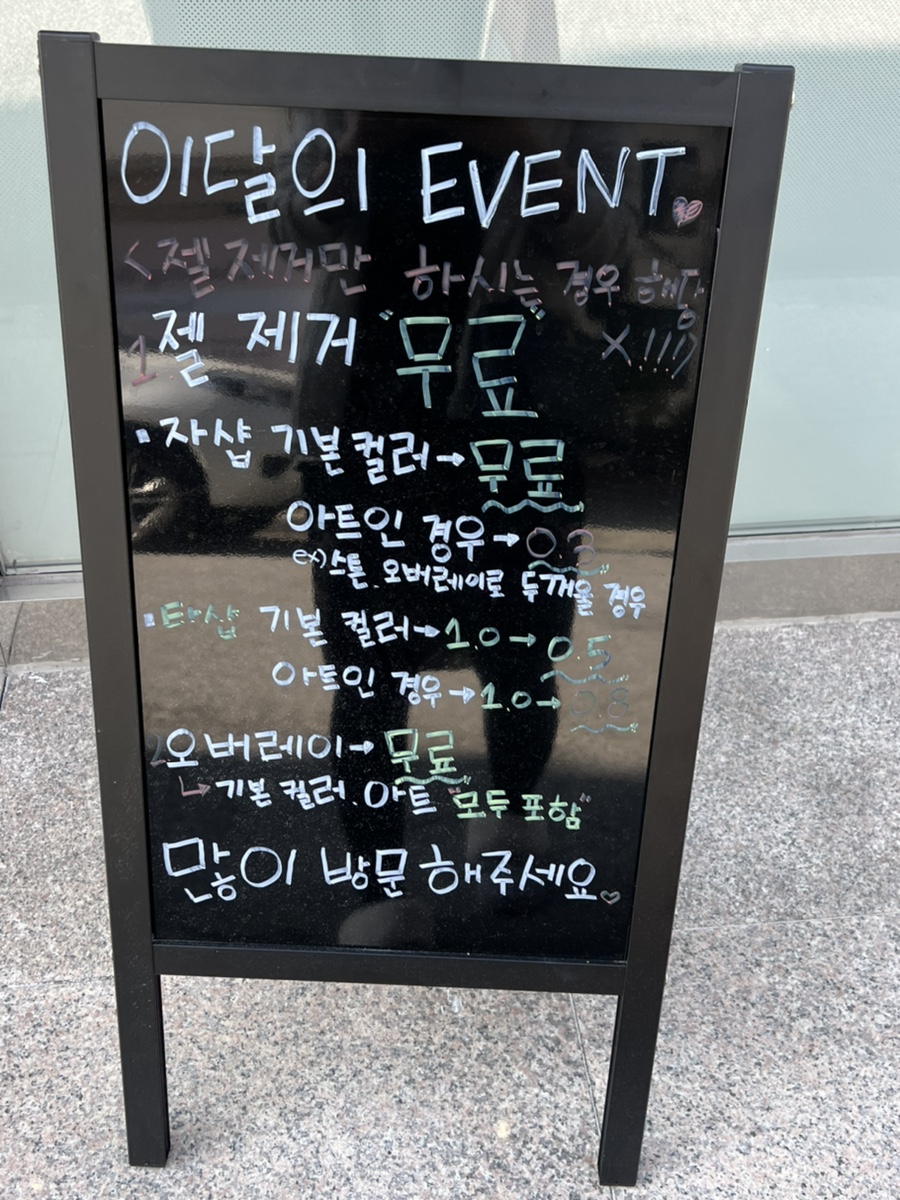 이달의 EVENT
<젤 제거만 하시는 경우 해당
X!!!>
1 젤 제거 "무료"
▪자샵 기본 컬러→무료
아트인 경우→0.3
ex)스톤.오버레이로 두꺼울 경우
▪타샵 기본 컬러→1.0→0.5
아트인 경우→1.0→0.8
2오버레이→무료
↳기본 컬러.아트 "모두 포함"
많이 방문해주세요♡